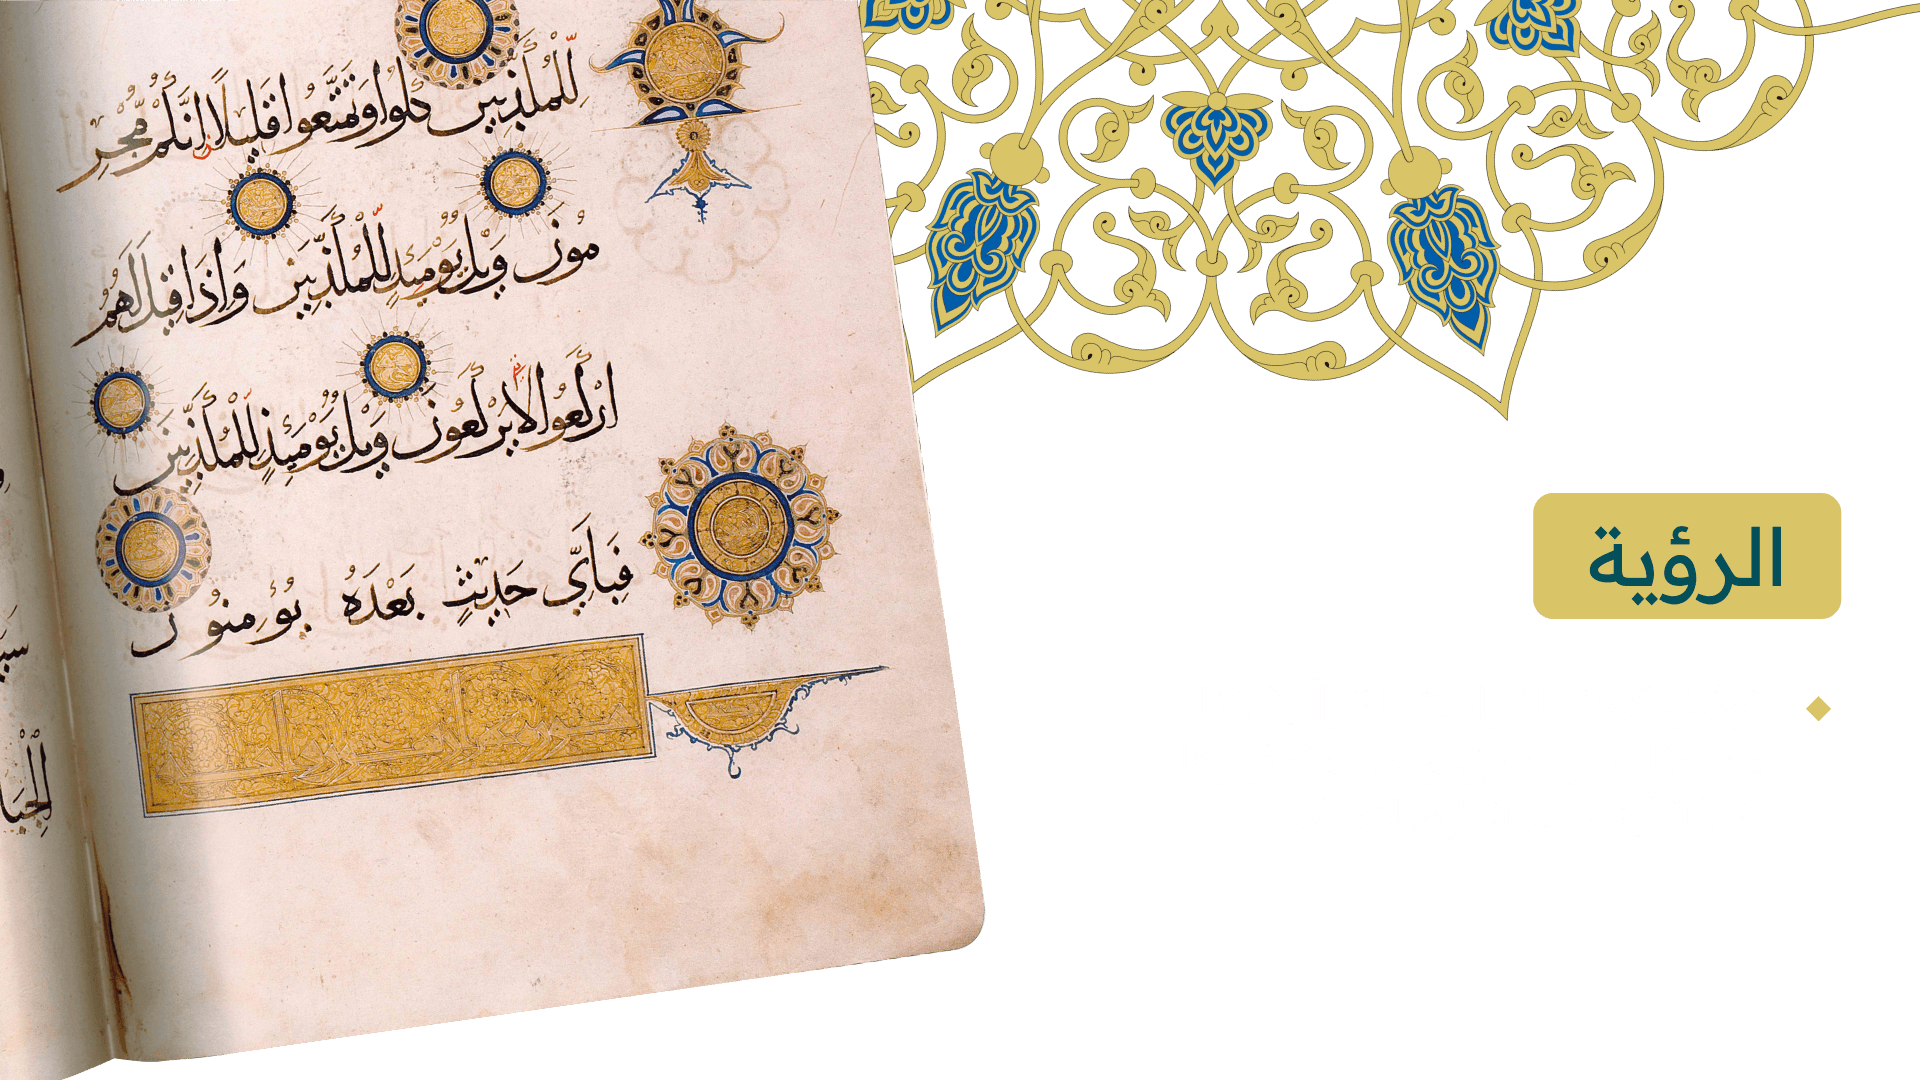 للمكذبين كلوا وتمتعوا قليلا انكم مجر
مون ويل يومئذ للمكذبين واذا قيل لهم
اركعوا لا يركعون ويل يومئذ للمكذبين
فبأي حديث بعده يؤمنون
الرؤية